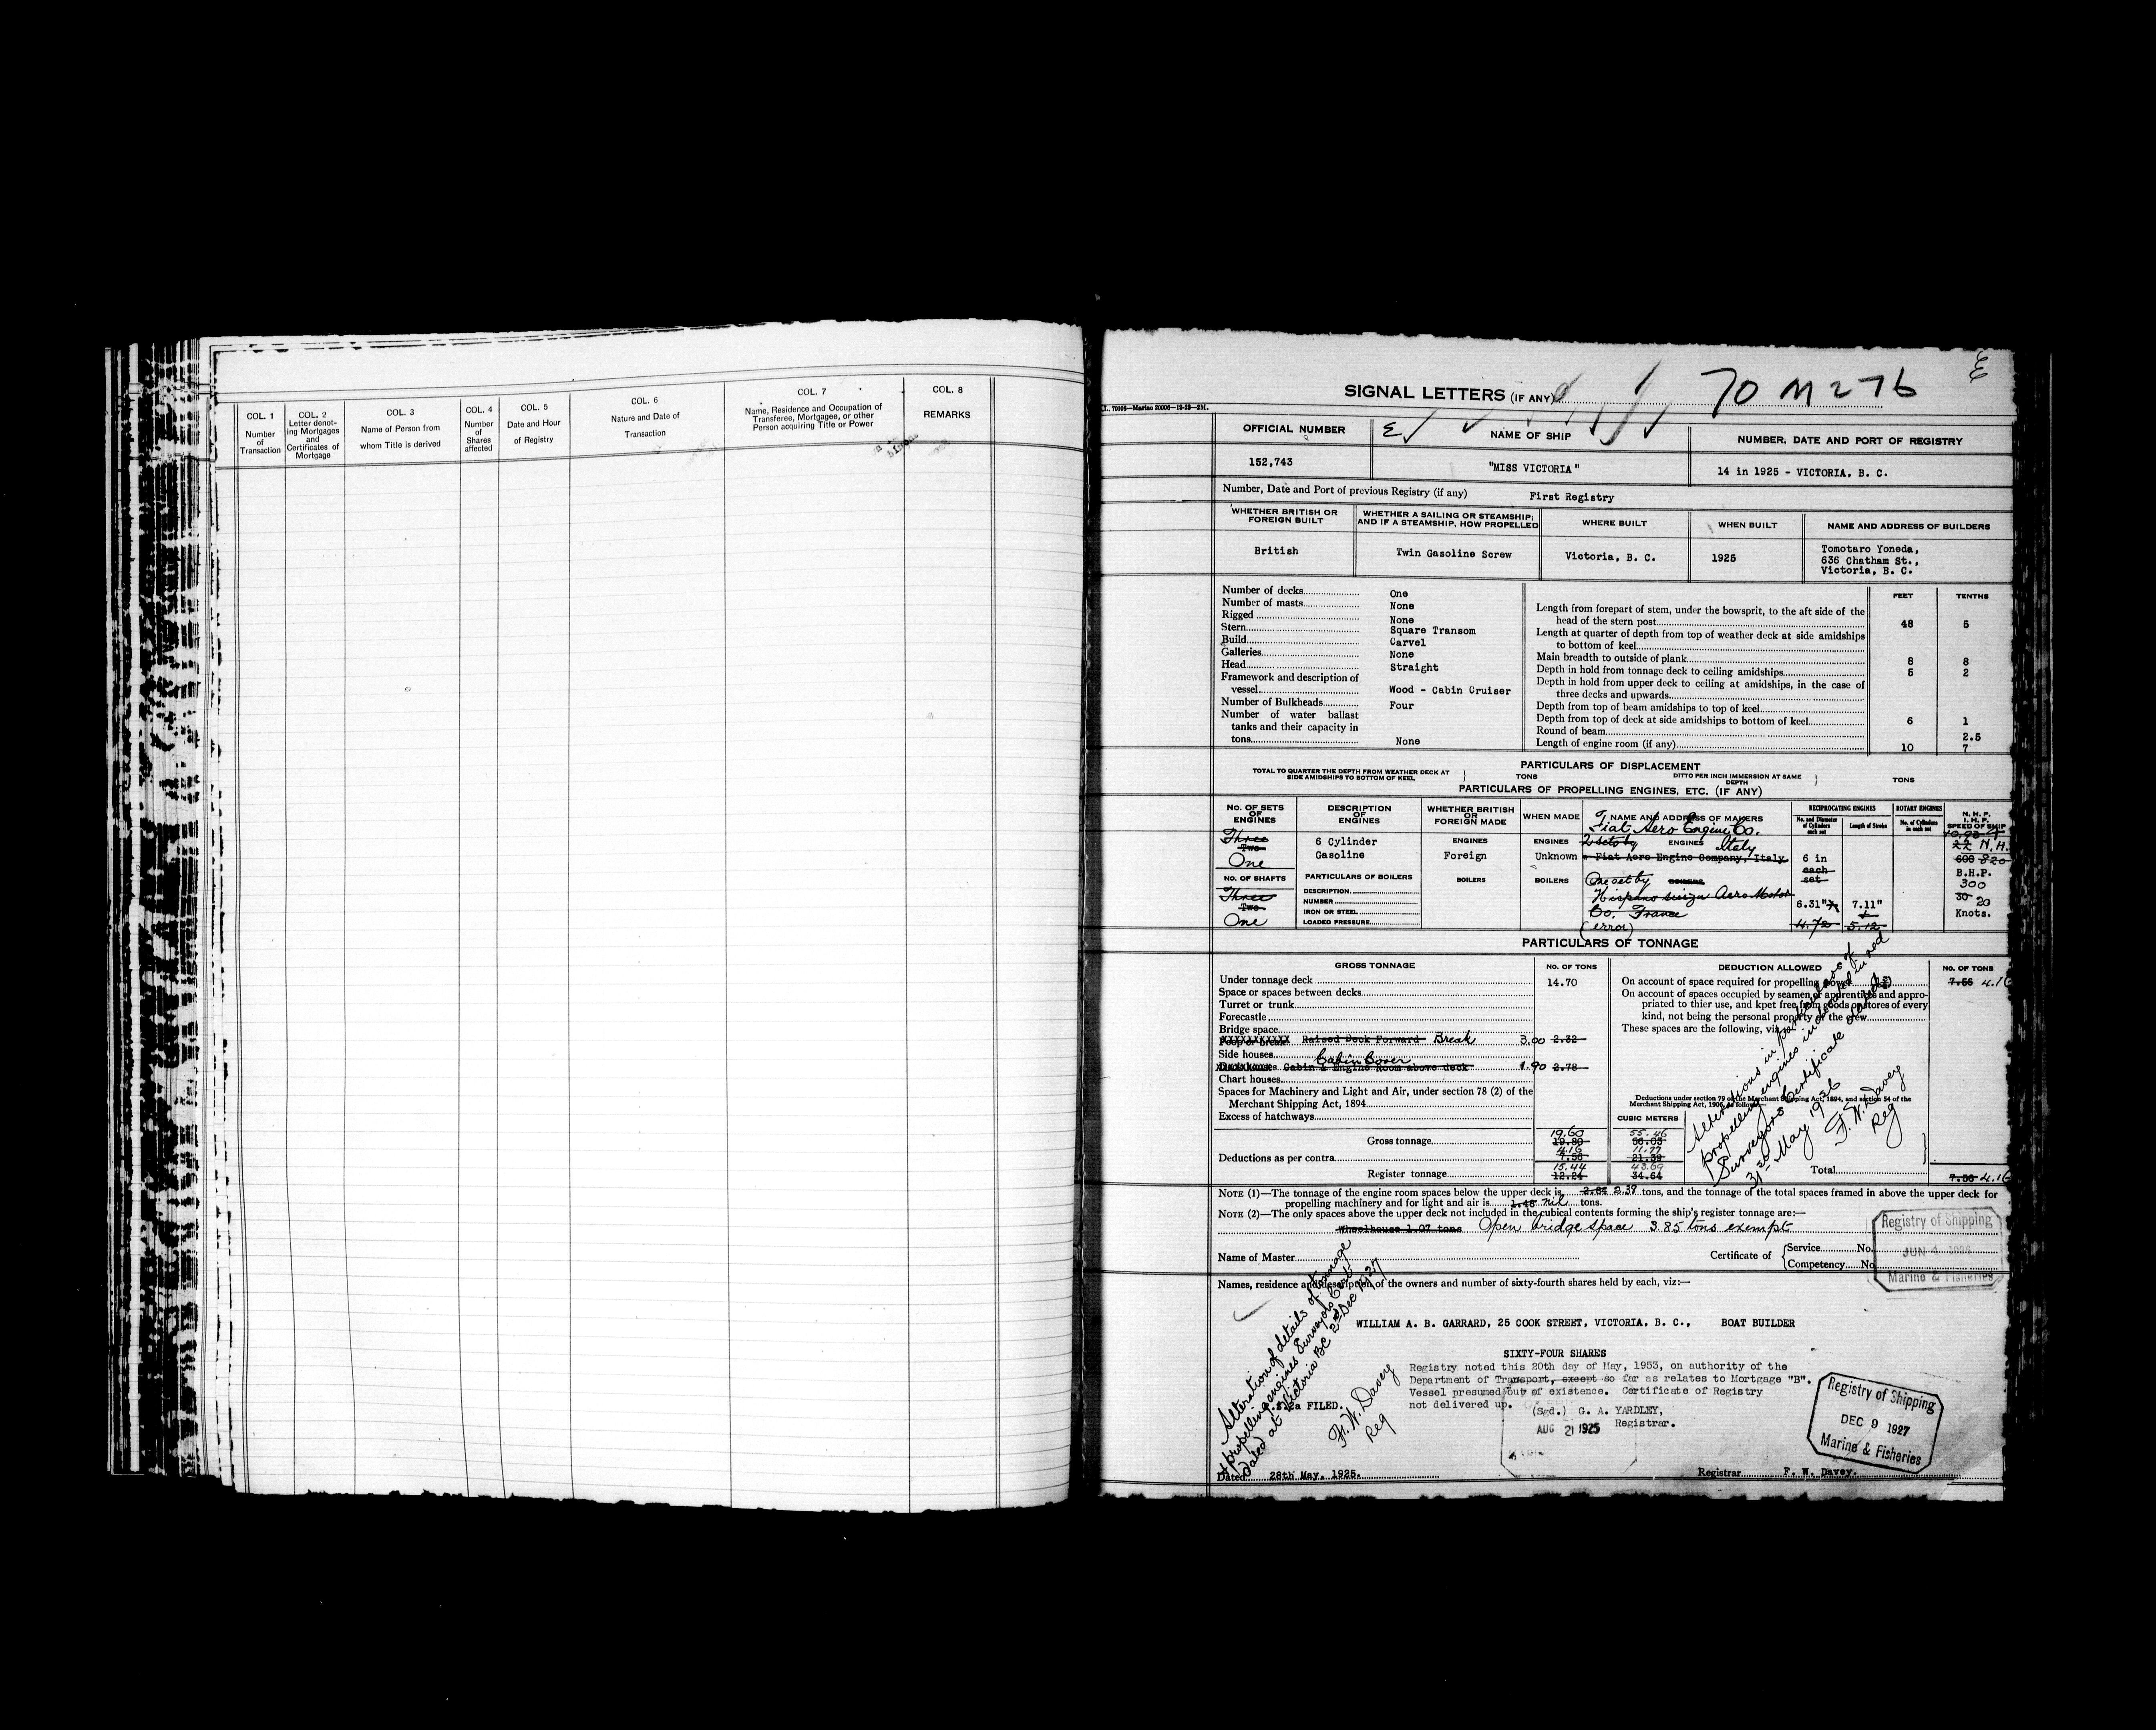 COL. 1
Number
of
Transaction
COL. 2
Letter denot-
ing Mortgages
and
Certificates of
Mortgage
COL. 3
Name of Person from
whom Title is derived
COL. 4
Number
of
Shares
affected
COL. 5
Date and Hour
of Registry
COL. 6
Nature and Date of
Transaction
COL. 7
Name, Residence and Occupation of
Transferee, Mortgagee, or other
Person acquiring Title or Power
COL. 8
REMARKS
SIGNAL LETTERS (IF ANY) 70 M 276
OFFICIAL NUMBER
NAME OF SHIP
NUMBER, DATE AND PORT OF REGISTRY
152,743
"MISS VICTORIA"
14 in 1925 - VICTORIA, B. C.
Number, Date and Port of previous Registry (if any) First Registry
WHETHER BRITISH OR
FOREIGN BUILT
WHETHER A SAILING OR STEAMSHIP;
AND IF A STEAMSHIP, HOW PROPELLED
WHERE BUILT
WHEN BUILT
NAME AND ADDRESS OF BUILDERS
British
Twin Gasoline Screw
Victoria, B. C.
1925
Tomotaro Yoneda,
636 Chatham St.,
Victoria, B. C.
Number of decks One
Number of masts None
Rigged None
Stern Square Transom
Build Carvel
Galleries None
Head Straight
Framework and description of
vessel Wood - Cabin Cruiser
Number of Bulkheads Four
Number of water ballast
tanks and their capacity in
tons None
FEET TENTHS
Length from forepart of stem, under the bowsprit, to the aft side of the
head of the stern post 48 5
Length at quarter of depth from top of weather deck at side amidships
to bottom of keel
Main breadth to outside of plank 8 8
Depth in hold from tonnage deck to ceiling amidships 5 2
Depth in hold from upper deck to ceiling at amidships, in the case of
three decks and upwards
Depth from top of beam amidships to top of keel
Depth from top of deck at side amidships to bottom of keel 6 1
Round of beam 2.5
Length of engine room (if any) 10 7
PARTICULARS OF DISPLACEMENT
TOTAL TO QUARTER THE DEPTH FROM WEATHER DECK AT
SIDE AMIDSHIPS TO BOTTOM OF KEEL
TONS
DITTO PER INCH IMMERSION AT SAME
DEPTH
TONS
PARTICULARS OF PROPELLING ENGINES, ETC. (IF ANY)
NO. OF SETS
OF
ENGINES
DESCRIPTION
OF
ENGINES
WHETHER BRITISH
OR
FOREIGN MADE
WHEN MADE
NAME AND ADDRESS OF MAKERS
RECIPROCATING ENGINES
No. and Diameter
of Cylinders
each set
Length of Stroke
ROTARY ENGINES
No. of Cylinders
in each set
N. H. P.
I. H. P.
SPEED OF SHIP
Three
Two
One
6 Cylinder
Gasoline
ENGINES
Foreign
ENGINES
Unknown
Fiat Aero Engine Co.
2 sets by ENGINES Italy
Fiat Aero Engine Company, Italy
6 in
each
set
22 N.H.
600 820
B.H.P.
300
30 20
Knots.
NO. OF SHAFTS
Three
Two
One
PARTICULARS OF BOILERS
DESCRIPTION
NUMBER
IRON OR STEEL
LOADED PRESSURE
BOILERS
BOILERS
One set by BOILERS
Hispano Suiza Aero Motor
Co. France
(error)
6.31" 7.11"
4.72 5.12
PARTICULARS OF TONNAGE
GROSS TONNAGE
NO. OF TONS
DEDUCTION ALLOWED
NO. OF TONS
Under tonnage deck 14.70
Space or spaces between decks
Turret or trunk
Forecastle
Bridge space
Poop or break Raised Deck Forward Break 3.00 2.32
Side houses Cabin Cover
Cabin & Engine Room above deck 1.90 2.78
Chart houses
Spaces for Machinery and Light and Air, under section 78 (2) of the
Merchant Shipping Act, 1894
Excess of hatchways
CUBIC METERS
Gross tonnage 19.60 55.46
19.80 56.03
Deductions as per contra 4.16 11.77
7.56 21.39
Register tonnage 15.44 43.69
12.24 34.64
On account of space required for propelling power 7.56 4.16
On account of spaces occupied by seamen or apprentices and appro-
priated to thier use, and kpet free from goods or stores of every
kind, not being the personal property of the crew
These spaces are the following, viz
Deductions under section 79 of the Merchant Shipping Act, 1894, and section 54 of the
Merchant Shipping Act, 1906, as follows
Total 7.56 4.16
Alterations in particulars of
propelling engines indorsed in red
Surveyors Certificate dated
31st May 1926
F. W. Davey
Reg
NOTE (1)—The tonnage of the engine room spaces below the upper deck is 2.64 2.37 tons, and the tonnage of the total spaces framed in above the upper deck for
propelling machinery and for light and air is 1.48 nil tons.
NOTE (2)—The only spaces above the upper deck not included in the cubical contents forming the ship's register tonnage are:—
Wheelhouse 1.07 tons Open bridge space 3.85 tons exempt
Registry of Shipping
JUN 4 1926
Marine & Fisheries
Name of Master
Certificate of
Service No.
Competency No.
Names, residence and description of the owners and number of sixty-fourth shares held by each, viz:—
WILLIAM A. B. GARRARD, 25 COOK STREET, VICTORIA, B. C., BOAT BUILDER
SIXTY-FOUR SHARES
Registry noted this 20th day of May, 1953, on authority of the
Department of Transport, except so far as relates to Mortgage "B".
Vessel presumed out of existence. Certificate of Registry
not delivered up.
(Sgd.) G. A. YARDLEY,
Registrar.
FILED.
AUG 21 1925
Alteration of details of tonnage
& propelling engines Surveyors Cert
dated at Victoria BC 2nd Dec 1927
F. W. Davey
Reg
Registry of Shipping
DEC 9 1927
Marine & Fisheries
Dated 28th May, 1925.
Registrar F. W. Davey.